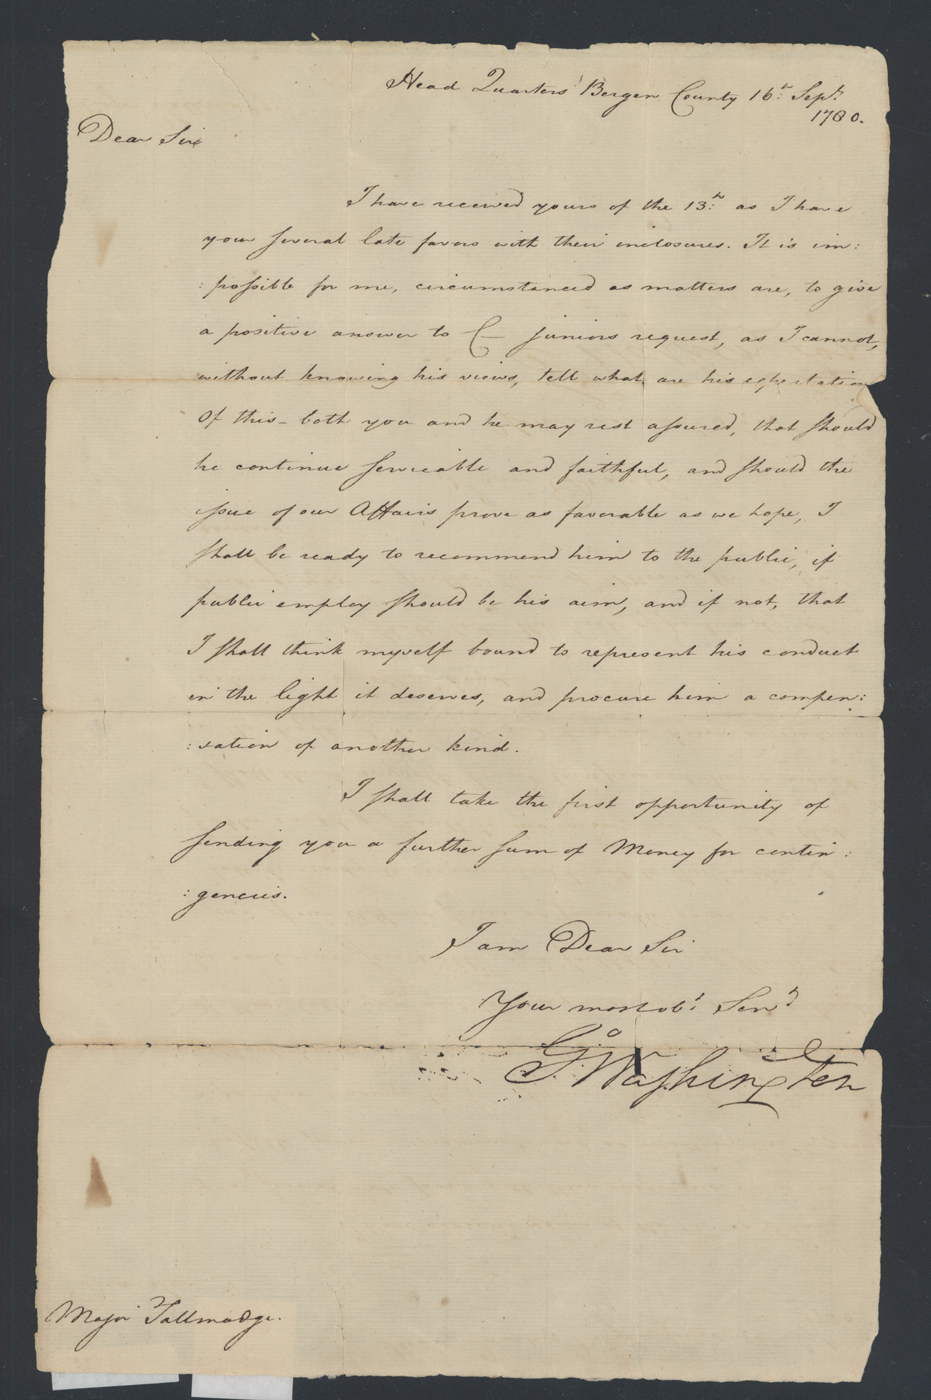 Head Quarters Bergen County 16th Sept.
1780.
Dear Sir
I have received yours of the 13th as I have
your several late favors with their inclosures. It is im:
:possible for me, circumstanced as matters are, to give
a positive answer to C— juniors request, as I cannot,
without knowing his views, tell what are his expectations
Of this – both you and he may rest assured, that should
he continue serviceable and faithful, and should the
issue of our Affairs prove as favorable as we hope, I
shall be ready to recommend him to the public, if
public employ should be his aim, and if not, that
I shall think myself bound to represent his conduct
in the light it deserves, and procure him a compen:
:sation of another kind.
I shall take the first opportunity of
sending you a further sum of Money for contin:
:gencies.
I am Dear Sir
Your most obt Servt
Go Washington
Major Tallmadge.